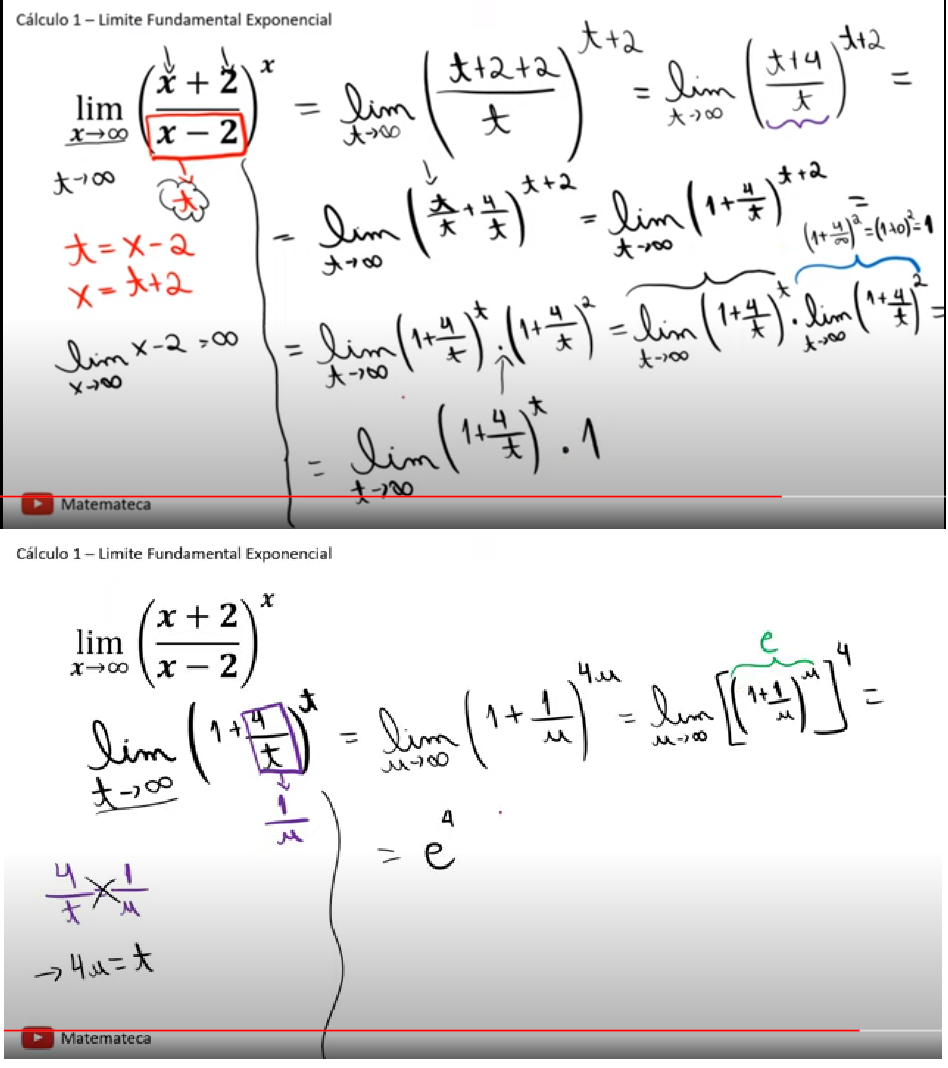 Cálculo 1 – Limite Fundamental Exponencial
lim x→∞ ((x + 2)/(x − 2))^x = lim t→∞ ((t+2+2)/t)^(t+2) = lim t→∞ ((t+4)/t)^(t+2) =
t→∞
t
= lim t→∞ (t/t + 4/t)^(t+2) = lim t→∞ (1+4/t)^(t+2) =
t = x − 2
x = t+2
(1+4/∞)² = (1+0)² = 1
lim x→∞ x−2 = ∞
= lim t→∞ (1+4/t)^t · (1+4/t)² = lim t→∞ (1+4/t)^t · lim t→∞ (1+4/t)² =
= lim t→∞ (1+4/t)^t · 1
Matemateca
Cálculo 1 – Limite Fundamental Exponencial
lim x→∞ ((x + 2)/(x − 2))^x
e
lim t→∞ (1+4/t)^t = lim u→∞ (1+1/u)^(4u) = lim u→∞ [(1+1/u)^u]^4 =
1/u
= e^4
4/t 1/u
→ 4u = t
Matemateca